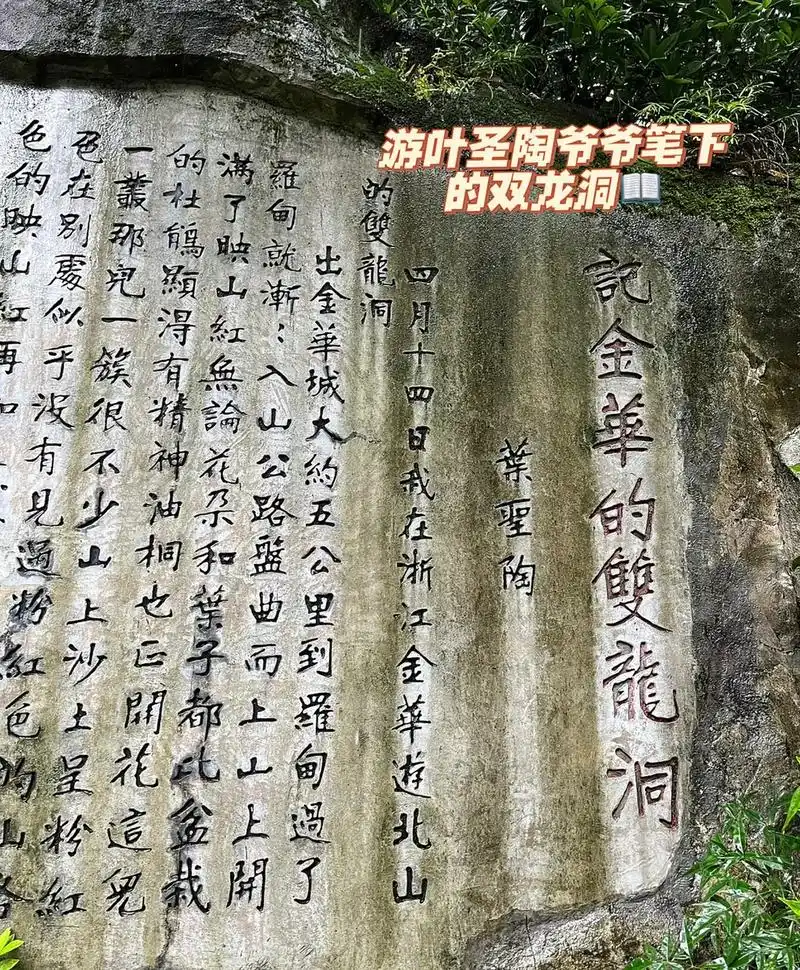 游叶圣陶爷爷笔下
的双龙洞
記金華的雙龍洞
葉聖陶
四月十四日我在浙江金華遊北山
的雙龍洞
出金華城大約五公里到羅甸過了
羅甸就漸：入山公路盤曲而上山上開
滿了映山紅無論花朶和葉子都比盆栽
的杜鵑顯得有精神油桐也正開花這兒
一叢那兒一簇很不少山上沙土呈粉紅
色在別處似乎沒有見過粉紅色的山
色的映山紅再加